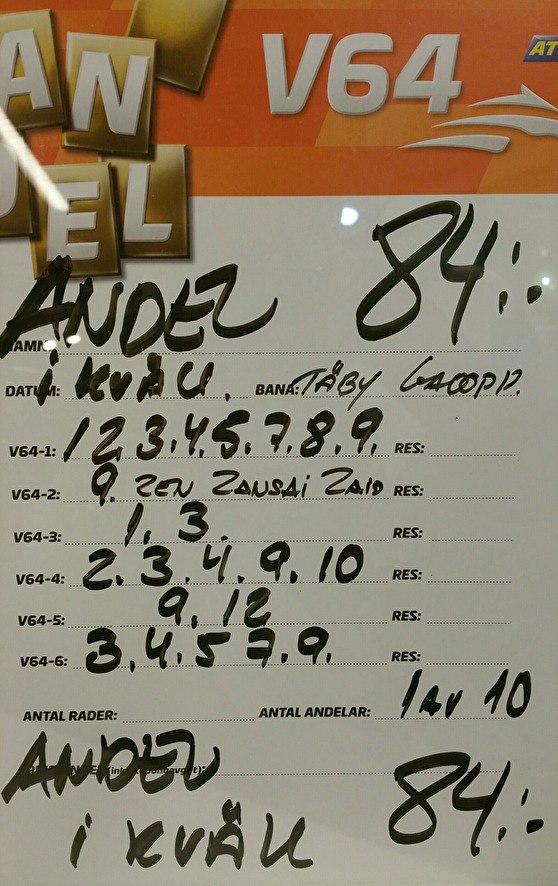 AN V64 AT
DEL
ANDEL 84:-
NAMN:
DATUM: i KVÄLL. BANA: TÄBY GALOPP.
V64-1: 1 2, 3. 4. 5. 7. 8. 9. RES:
V64-2: 9. ZEN ZANSAI ZAID RES:
V64-3: 1. 3. RES:
V64-4: 2. 3. 4. 9. 10 RES:
V64-5: 9. 12 RES:
V64-6: 3, 4. 5 7. 9. RES:
ANTAL RADER: ANTAL ANDELAR: 1 AV 10
ANDEL 84:-
i KVÄLL